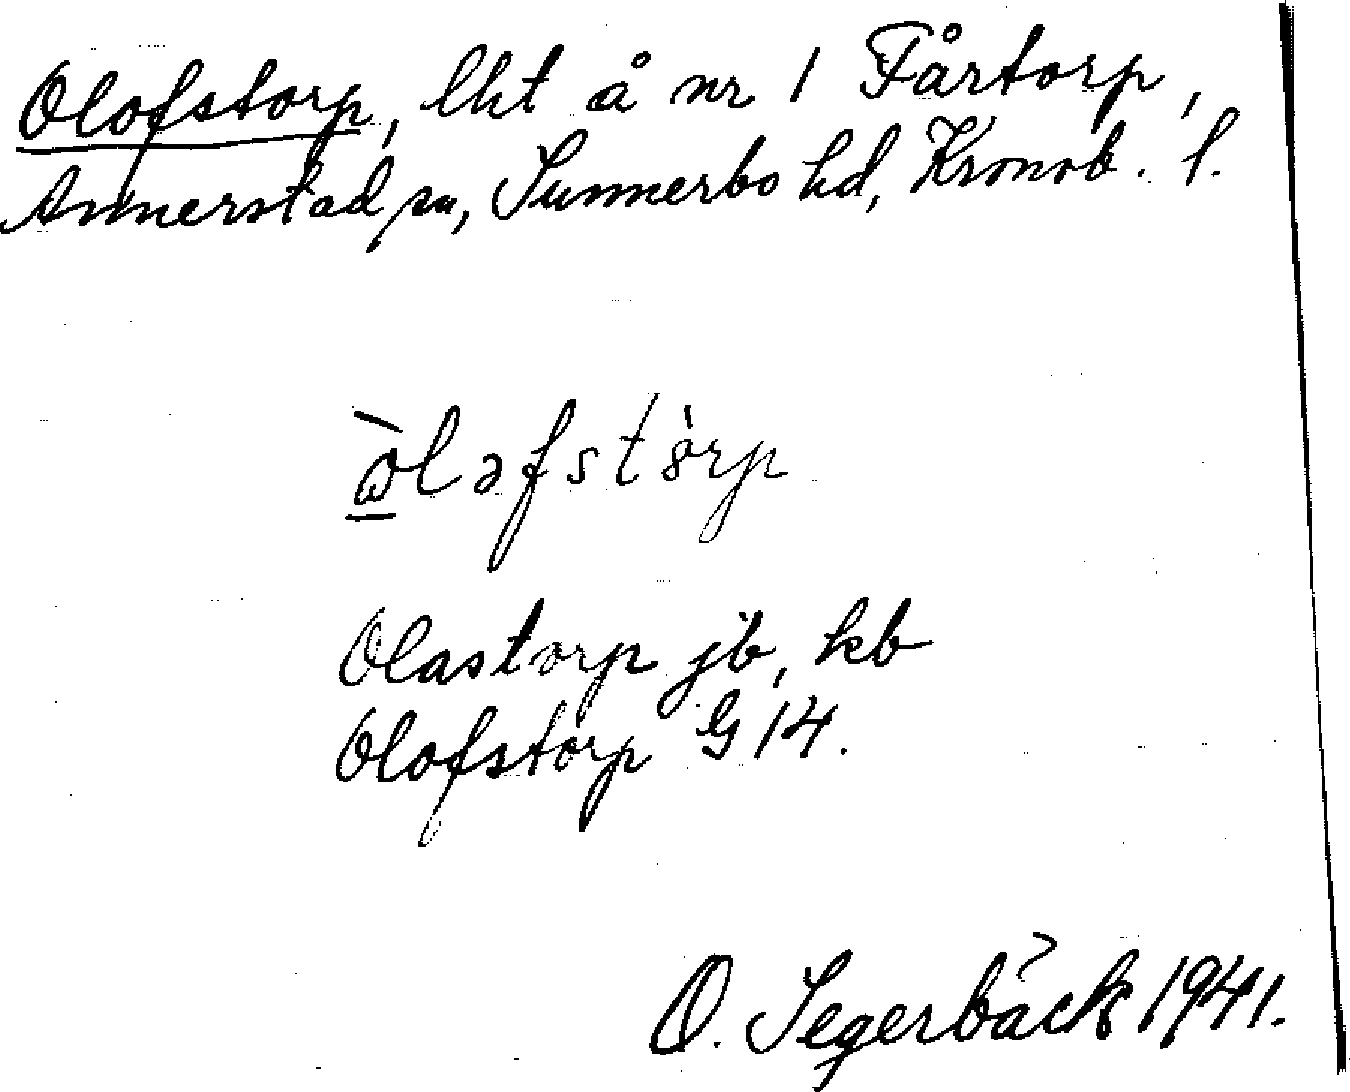 Olofstorp, lht å nr 1 Fårtorp,
Annerstad sn, Sunnerbo hd, Kronob. l.
Olastorp jb, kb
Olofstorp G 14.
O. Segerbäck 1941.